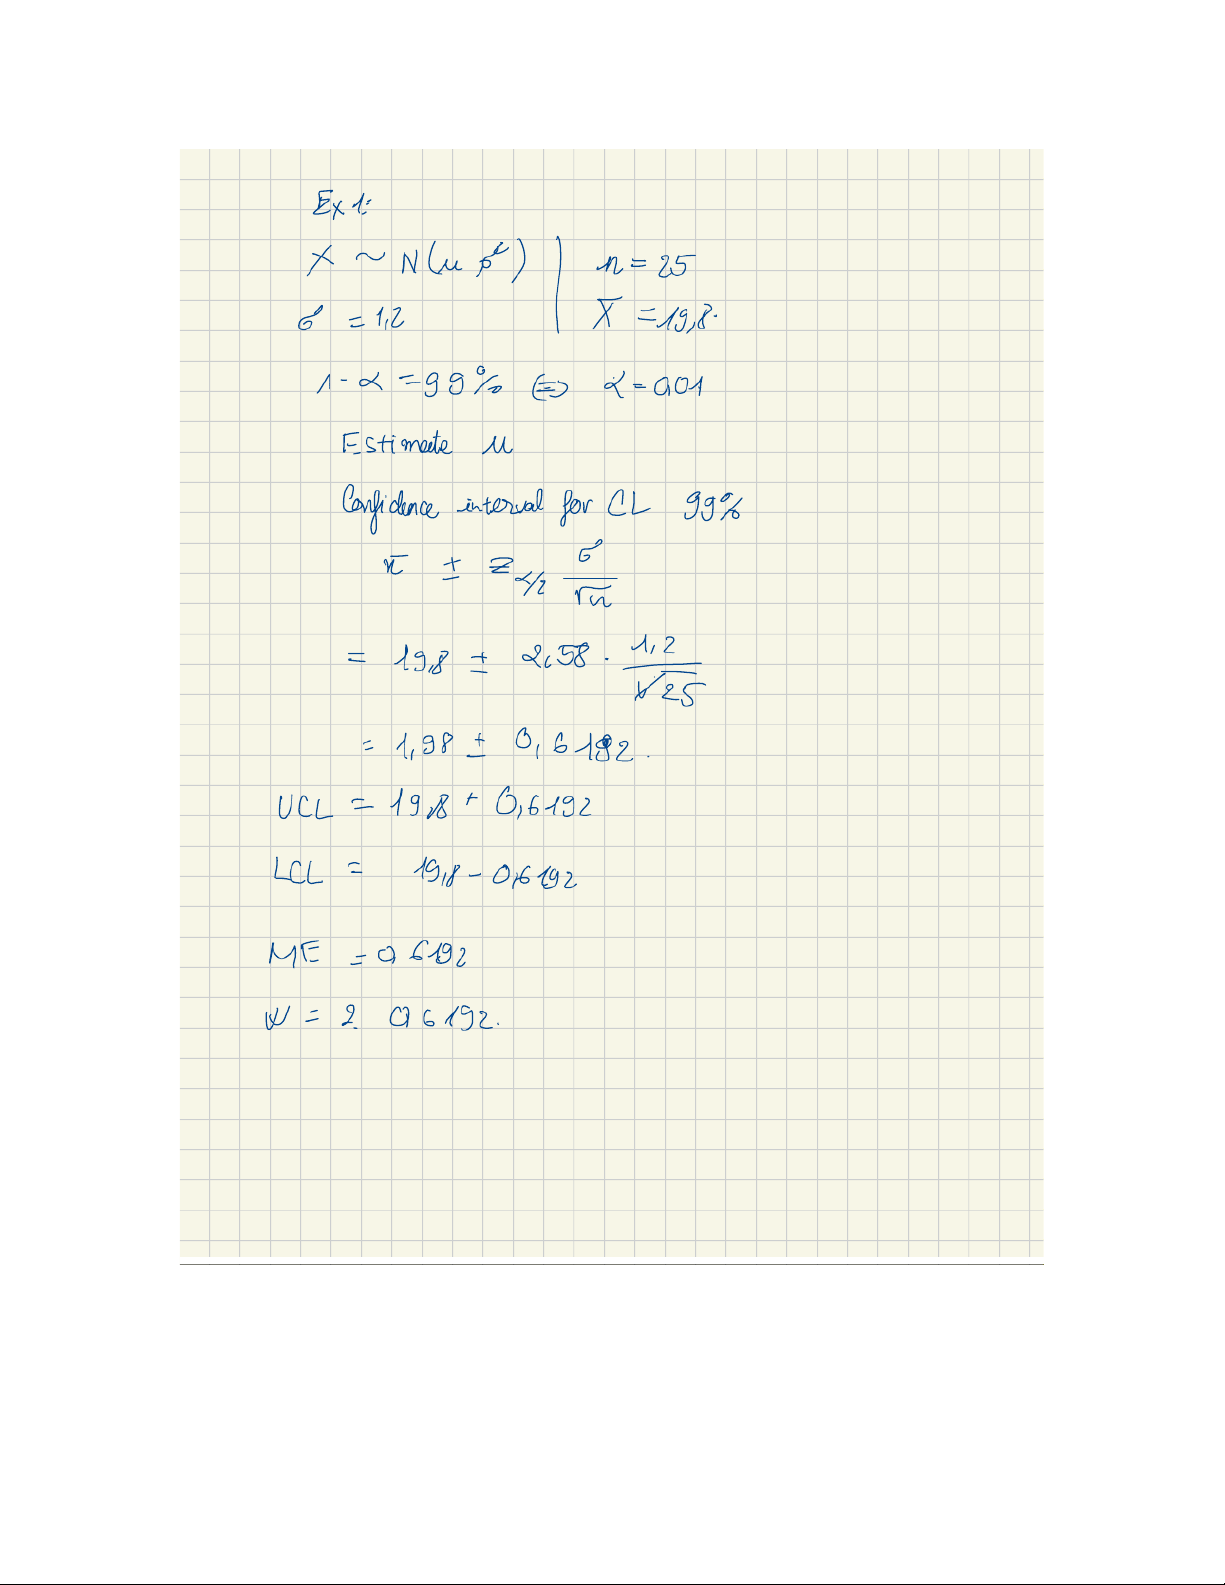 Ex 1:
X ~ N(μ σ²) | n = 25
σ = 1,2 | X̄ = 19,8.
1 - α = 99% ⇔ α = 0,01
Estimate μ
Confidence interval for CL 99%
x̄ ± z_{α/2} σ/√n
= 19,8 ± 2,58 . 1,2/√25
= 1,98 ± 0,6192.
UCL = 19,8 + 0,6192
LCL = 19,8 - 0,6192
ME = 0,6192
W = 2. 0,6192.